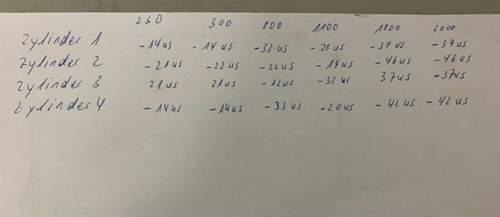 230 300 800 1100 1800 2000
Zylinder 1 -14us -14us -32us -28us -39us -39us
Zylinder 2 -21us -22us -22us -19us -46us -46us
Zylinder 3 21us 21us -12us -32us 37us -37us
Zylinder 4 -14us -14us -33us -20us -42us -42us